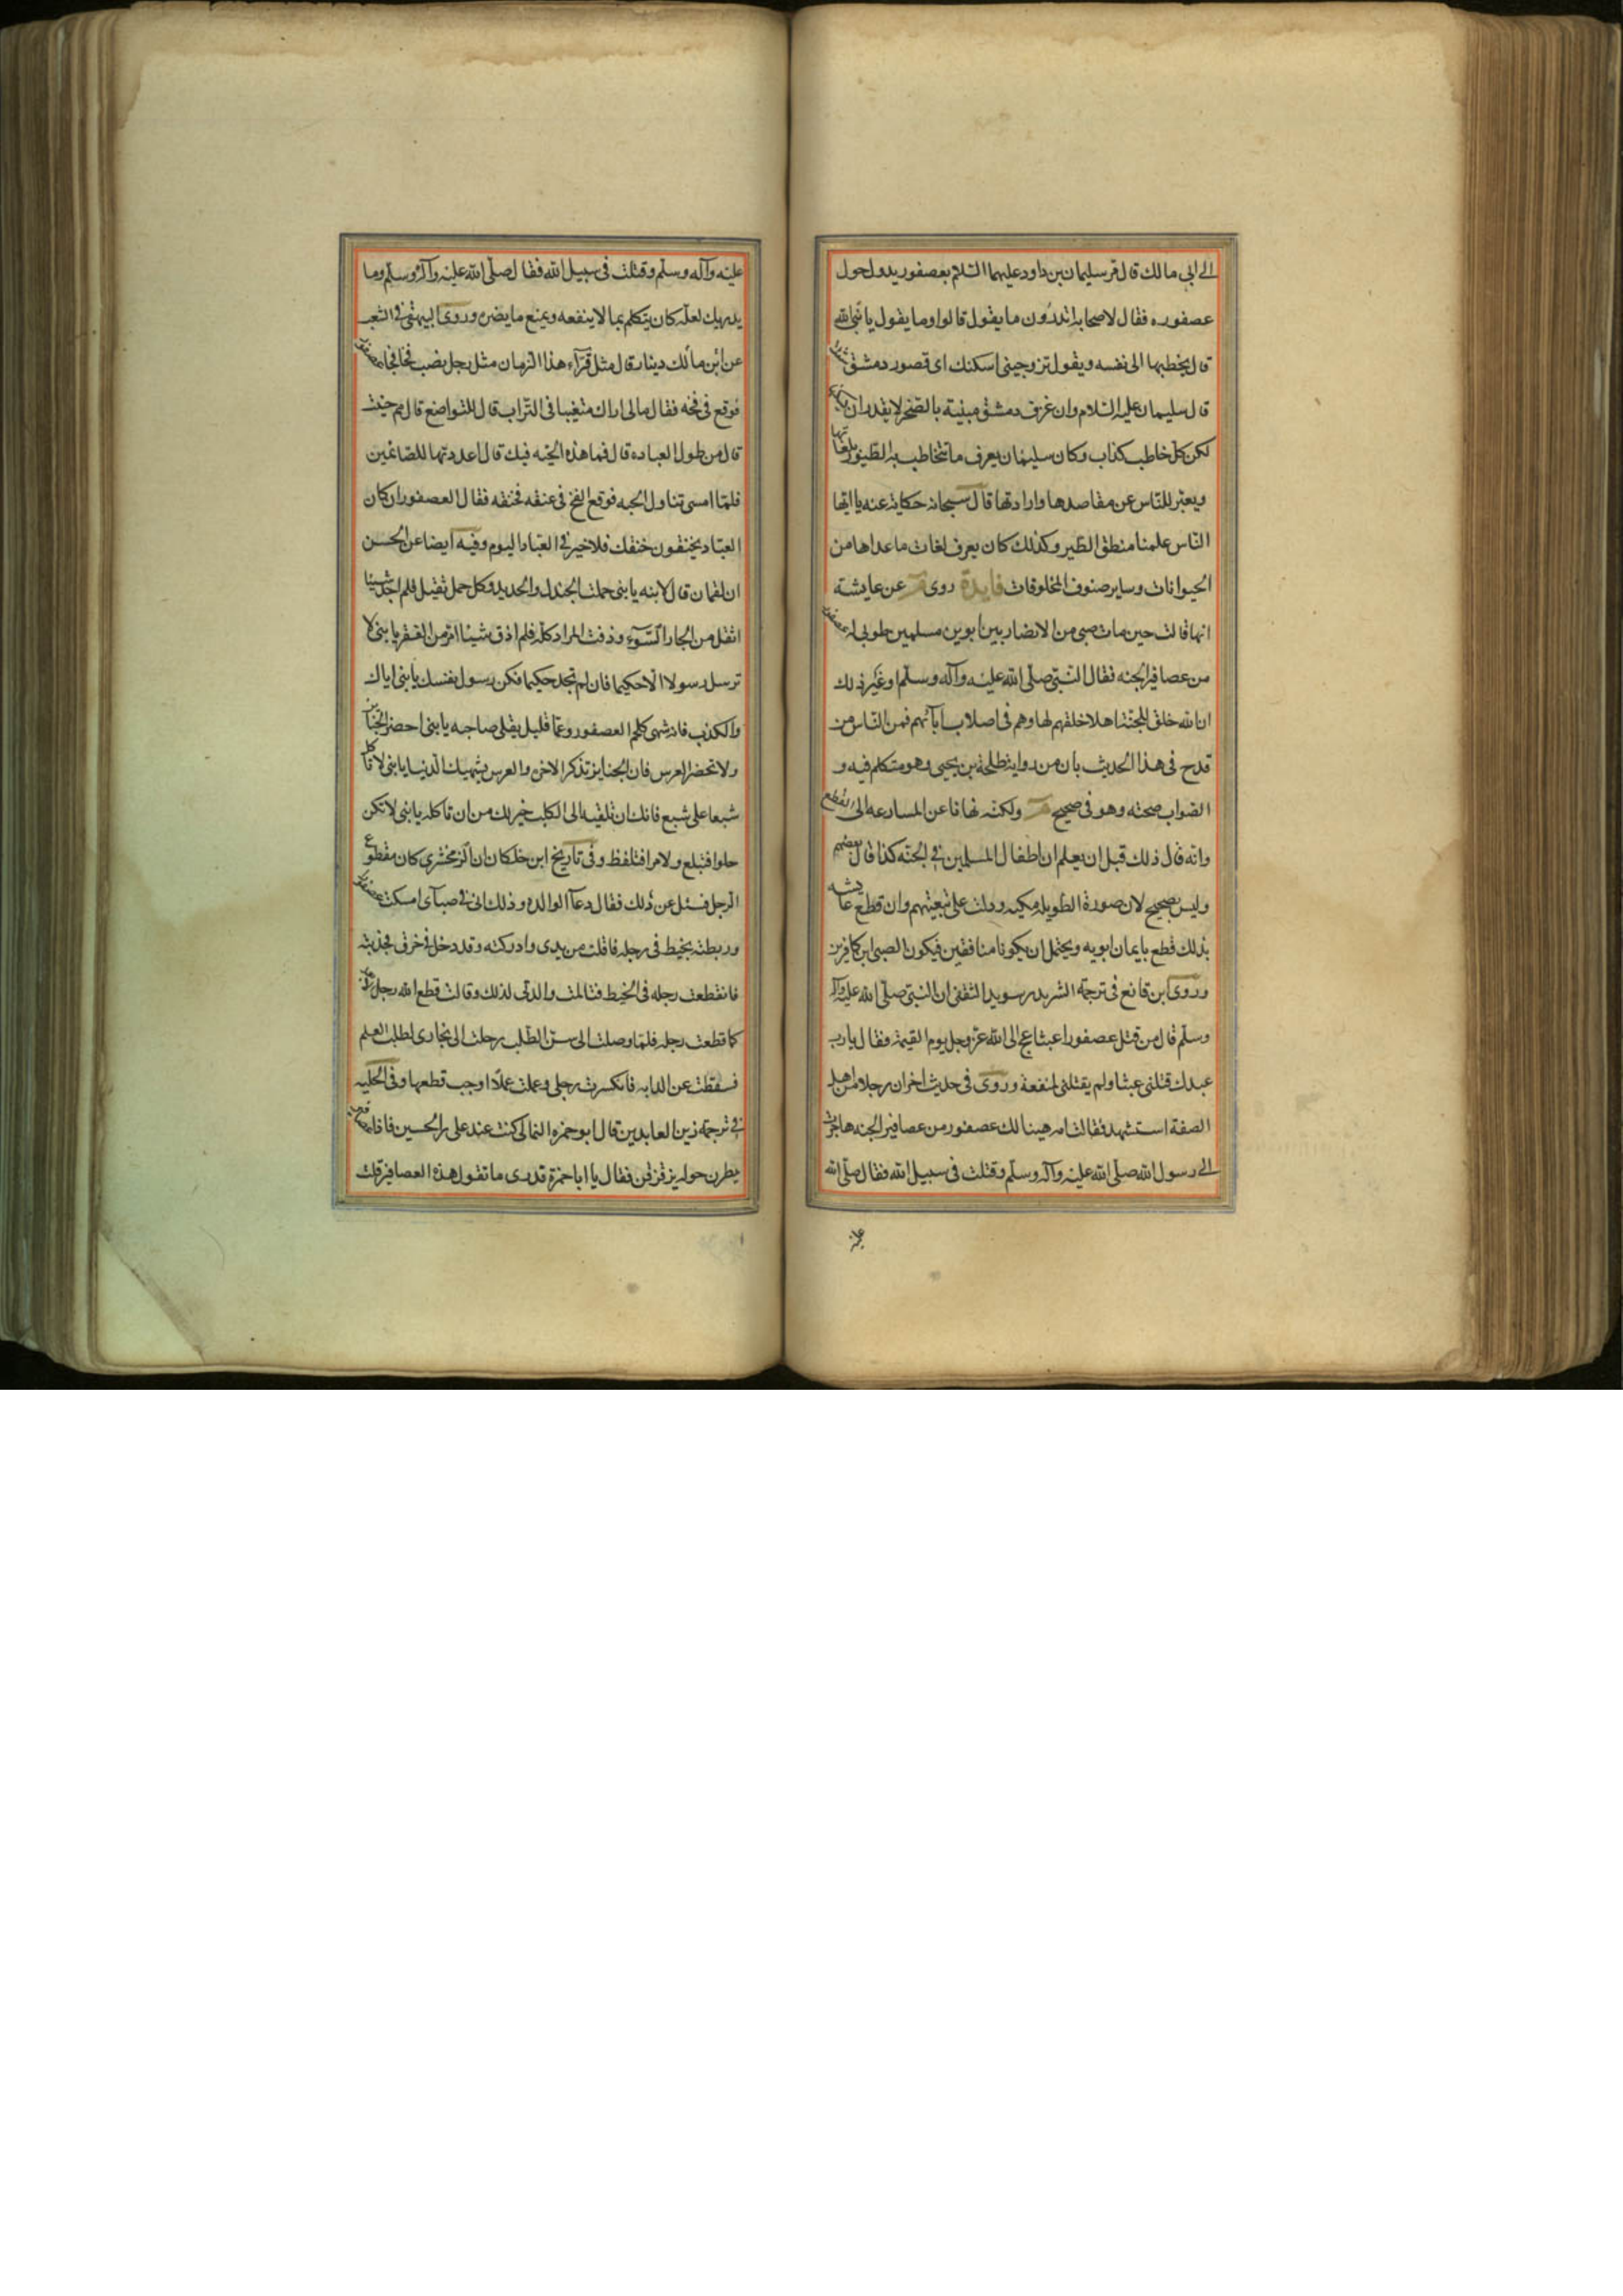 الى ابى مالك قال مر سليمان بن داود عليهما السلام بعصفور يدور حول
عصفوره فقال لاصحابه اتدرون ما يقول قالوا وما يقول يا نبى الله
قال يخطبها الى نفسه ويقول تزوجينى اسكنك اى قصور دمشق شئت
قال سليمان عليه السلام وان غرف دمشق مبنية بالصخر لا يقدر ان يسكنها
لكن كل خاطب كذاب وكان سليمان يعرف ما تتخاطب به الطيور بلغاتها
ويعبر للناس عن مقاصدها وارادتها قال سبحانه حكاية عنه يا ايها
الناس علمنا منطق الطير وكذلك كان يعرف لغات ما عداها من
الحيوانات وساير صنوف المخلوقات فايدة روى م عن عايشة
انها قالت حين مات صبى من الانصار بين ابوين مسلمين طوبى له عصفور
من عصافير الجنه فقال النبى صلى الله عليه وآله وسلم او غير ذلك
ان الله خلق للجنة اهلا خلقهم لها وهم فى اصلاب آبائهم فمن الناس من
قدح فى هذا الحديث بان من رواية طلحة بن يحيى وهو متكلم فيه و
الصواب صحته وهو فى صحيح م ولكنه نهانا عن المسارعه الى القطع
وانه قال ذلك قبل ان يعلم ان اطفال المسلمين فى الجنه كذا قال بعضهم
وليس بصحيح لان صورة الطويله مكيه ودلت على تبعيتهم وان قطع عايشه
بذلك قطع بايمان ابويه ويحتمل ان يكونا منافقين فيكون الصبى ابن كافرين
وروى ابن قانع فى ترجمة الشريد بن سويد الثقفى ان النبى صلى الله عليه وآله
وسلم قال من قتل عصفورا عبثا عج الى الله عز وجل يوم القيمة فقال يا رب
عبدك قتلنى عبثا ولم يقتلنى لمنفعة وروى فى حديث اخر ان رجلا من اهل
الصفة استشهد فقالت امه هنيئا لك عصفور من عصافير الجنه هاجرت
الى رسول الله صلى الله عليه وآله وسلم وقتلت فى سبيل الله فقال صلى الله
عليه
عليه وآله وسلم وقتلت فى سبيل الله فقال صلى الله عليه وآله وسلم وما
يدريك لعله كان يتكلم بما لا ينفعه ويمنع ما يضره وروى البيهقى فى الشعب
عن ابن مالك دينار قال مثل قراء هذا الزمان مثل رجل نصب فخا فجاء عصفور
فوقع فى فخه فقال ما لى اراك متغيبا فى التراب قال للتواضع قال مم حنيت
قال من طول العباده قال فما هذه الحبه فيك قال اعددتها للصائمين
فلما امسى تناول الحبه فوقع الفخ فى عنقه فخنقه فقال العصفور ان كان
العباد يخنقون خنقك فلا خير فى العباد اليوم وفيه ايضا عن الحسن
ان لقمان قال لابنه يا بنى حملت الجندل والحديد وكل حمل ثقيل فلم اجد شيئا
اثقل من الجار السوء وذقت المرار كله فلم اذق شيئا امر من الفقر يا بنى لا
ترسل رسولا الا حكيما فان لم تجد حكيما فكن رسول نفسك يا بنى اياك
والكذب فانه شهى كلحم العصفور وعما قليل يقلى صاحبه يا بنى احضر الجنائز
ولا تحضر العرس فان الجنايز تذكر الاخرى والعرس يشهيك الدنيا يا بنى لا تاكل
شبعا على شبع فانك ان تلقيه الى الكلب خير لك من ان تاكله يا بنى لا تكن
حلوا فتبلع ولا مرا فتلفظ وفى تاريخ ابن خلكان ان الزمخشرى كان مقطوع
الرجل فسئل عن ذلك فقال دعآ الوالده وذلك انى فى صباى امسكت عصفورا
وربطته بخيط فى رجله فافلت من يدى وادركته وقد دخل فى خرق فجذبته
فانقطعت رجله فى الخيط فتالمت والدتى لذلك وقالت قطع الله رجل
كما قطعت رجله فلما وصلت الى سن الطلب رحلت الى بخارى لطلب العلم
فسقطت عن الدابه فانكسرت رجلى وعملت عملا اوجب قطعها وفى الحليه
فى ترجمة زين العابدين قال ابو حمزه الثمالى كنت عند على بن الحسين فاذا عصافير
يطرن حوله يزقزقن فقال يا ابا حمزة تدرى ما تقول هذه العصافير قلت